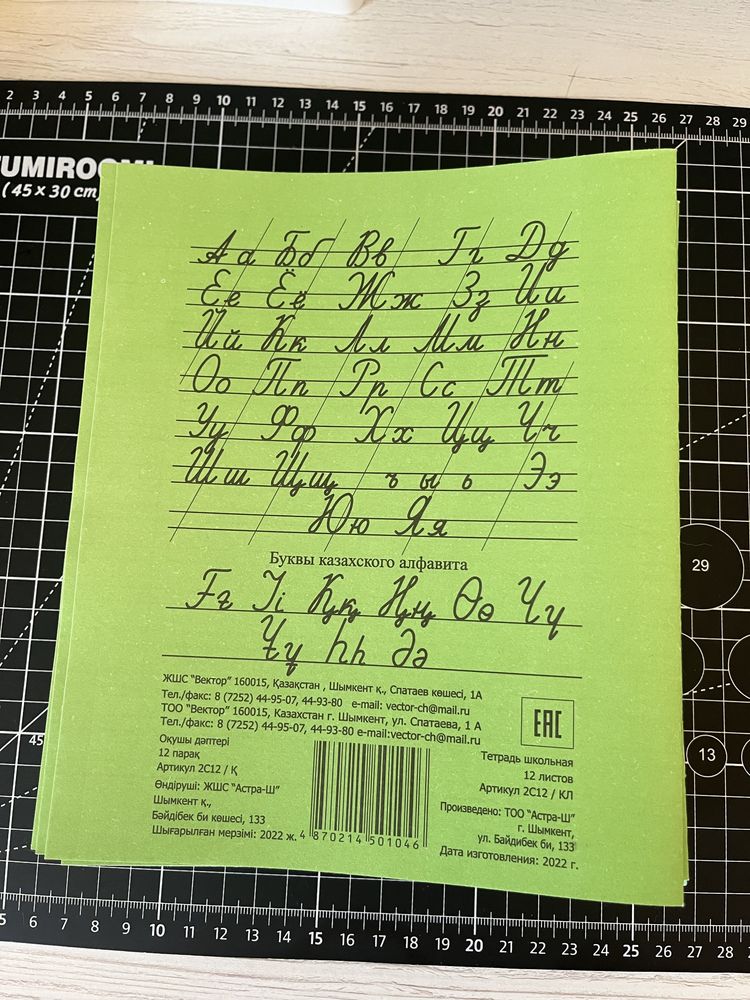 2 3 4 5 6 7 8 9 10 11 12 13 14 15 16 17 18 19 20 21 22 23 24 25 26 27 28 29
(45 × 30 cm)
Аа Бб Вв Гг Дд
Ее Ёё Жж Зз Ии
Йй Кк Лл Мм Нн
Оо Пп Рр Сс Тт
Уу Фф Хх Цц Чч
Шш Щщ ъ ы ь Ээ
Юю Яя
Буквы казахского алфавита
Ғғ Іі Ққ Ңң Өө Үү
Ұұ Һһ Әә
ЖШС "Вектор" 160015, Қазақстан , Шымкент қ., Спатаев көшесі, 1А
Тел./факс: 8 (7252) 44-95-07, 44-93-80 e-mail: vector-ch@mail.ru
ТОО "Вектор" 160015, Казахстан г. Шымкент, ул. Спатаева, 1 А
Тел./факс: 8 (7252) 44-95-07, 44-93-80 e-mail:vector-ch@mail.ru
EAC
Оқушы дәптері
12 парақ
Артикул 2С12 / Қ
Өндіруші: ЖШС "Астра-Ш"
Шымкент қ.,
Бәйдібек би көшесі, 133
Шығарылған мерзімі: 2022 ж.
4 870214 501046
Тетрадь школьная
12 листов
Артикул 2С12 / КЛ
Произведено: ТОО "Астра-Ш"
г. Шымкент,
ул. Байдибек би, 133
Дата изготовления: 2022 г.
29
13
45
5 6 7 8 9 10 11 12 13 14 15 16 17 18 19 20 21 22 23 24 25 26 27 28